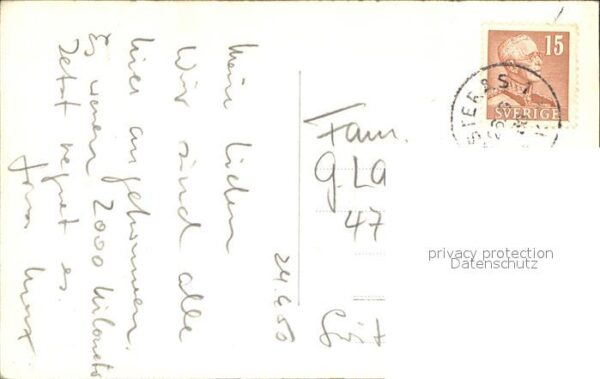 Meine Lieben
Wir sind alle
hier angekommen.
Es waren 2000 Kilometer
Jetzt regnet es.
24.6.50
Fam.
GLA
47
15
SVERIGE
privacy protection
Datenschutz